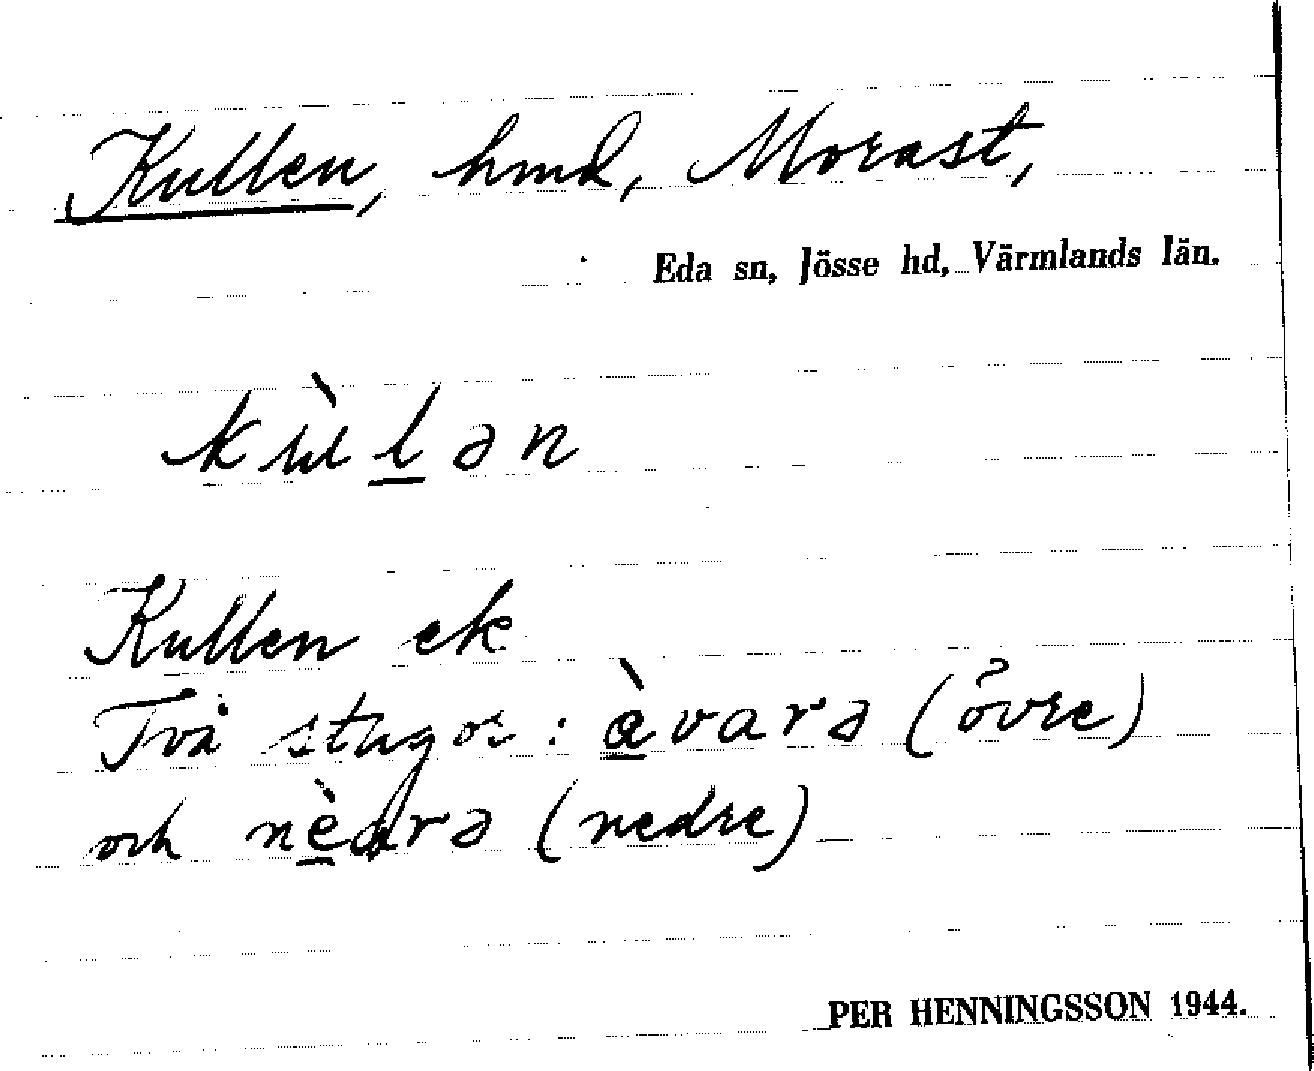 Kullen, hmd, Morast,
Eda sn, Jösse hd, Värmlands län.
kùlən
Kullen ek
Två stugor: àvarə (övre)
och nèdrə (nedre)
PER HENNINGSSON 1944.